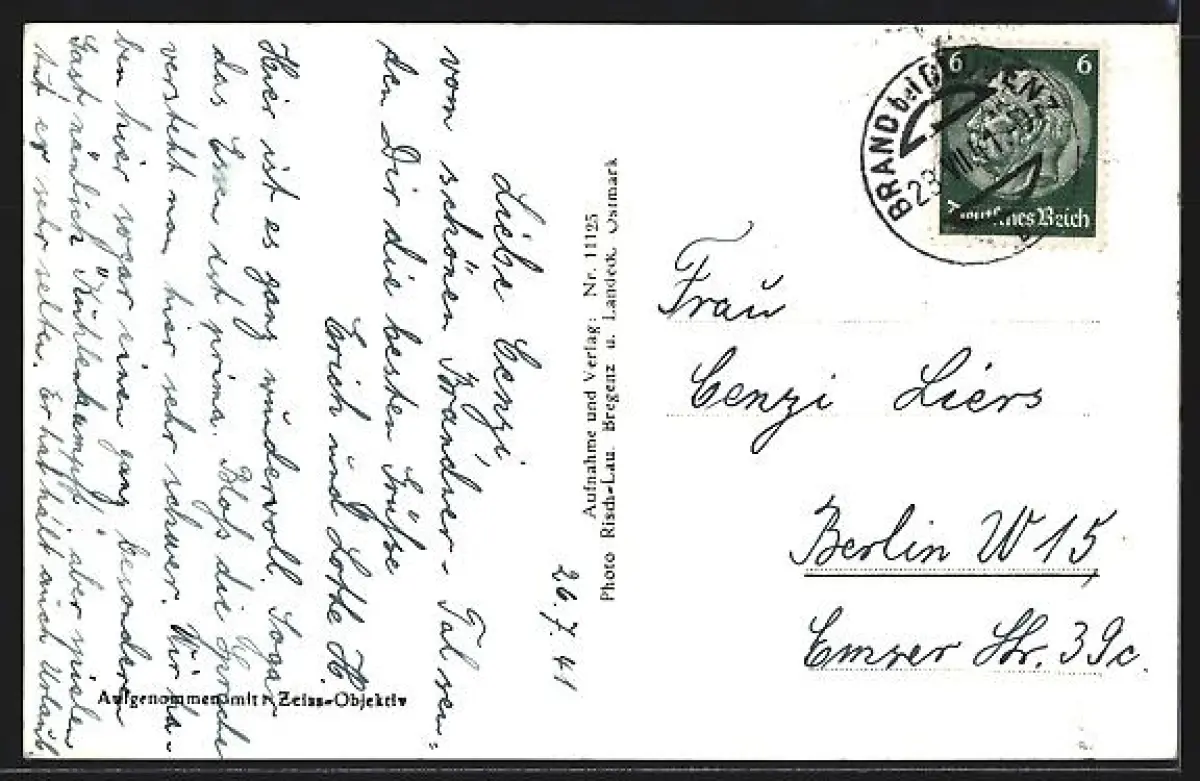 26.7.41
Liebe Cenzi.
vom schönen Brandner-Tal sen-
den Dir die besten Grüße
Erich und Lotte H.
Hier ist es ganz wundervoll. Sogar
das Essen ist prima. Bloß die Sprache
versteht man hier sehr schwer. Wir ha-
ben hier sogar einen ganz besonderen
Gast nämlich "Kuhlenkampf", aber spielen
tut er sehr selten. Er hat halt auch Urlaub.
Aufgenommen mit Zeiss-Objektiv
Aufnahme und Verlag: Nr. 11125
Photo Risch-Lau, Bregenz u. Landeck, Ostmark
BRAND bei BLUDENZ
6 6
Deutsches Reich
Frau
Cenzi Liers
Berlin W 15,
Emser Str. 39c.